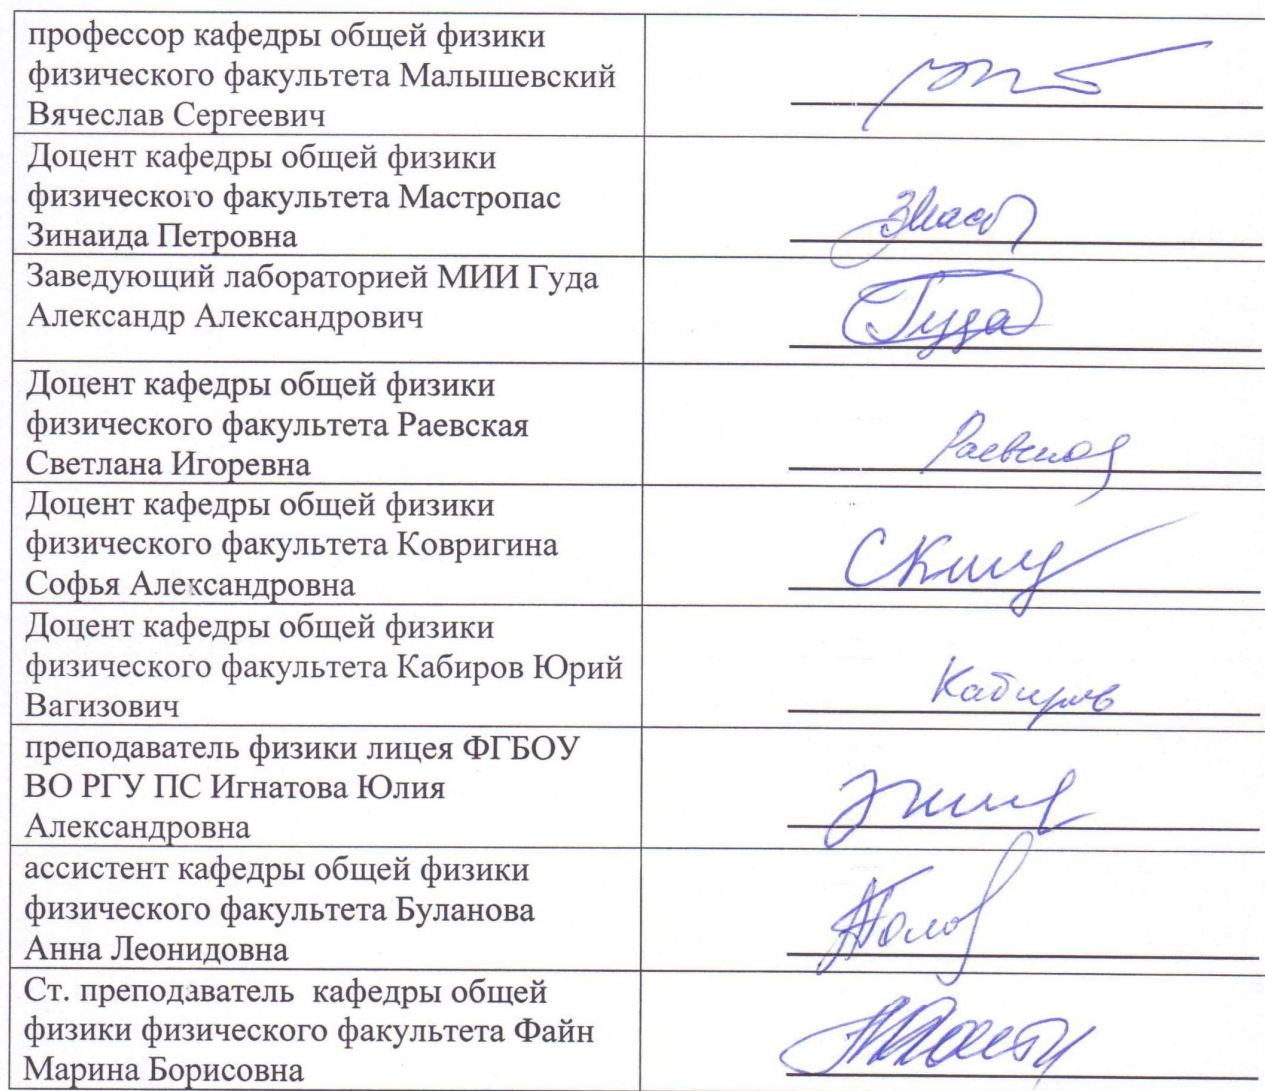 профессор кафедры общей физики
физического факультета Малышевский
Вячеслав Сергеевич
Доцент кафедры общей физики
физического факультета Мастропас
Зинаида Петровна
Заведующий лабораторией МИИ Гуда
Александр Александрович
Гуда
Доцент кафедры общей физики
физического факультета Раевская
Светлана Игоревна
Раевская
Доцент кафедры общей физики
физического факультета Ковригина
Софья Александровна
Доцент кафедры общей физики
физического факультета Кабиров Юрий
Вагизович
Кабиров
преподаватель физики лицея ФГБОУ
ВО РГУ ПС Игнатова Юлия
Александровна
ассистент кафедры общей физики
физического факультета Буланова
Анна Леонидовна
Ст. преподаватель кафедры общей
физики физического факультета Файн
Марина Борисовна